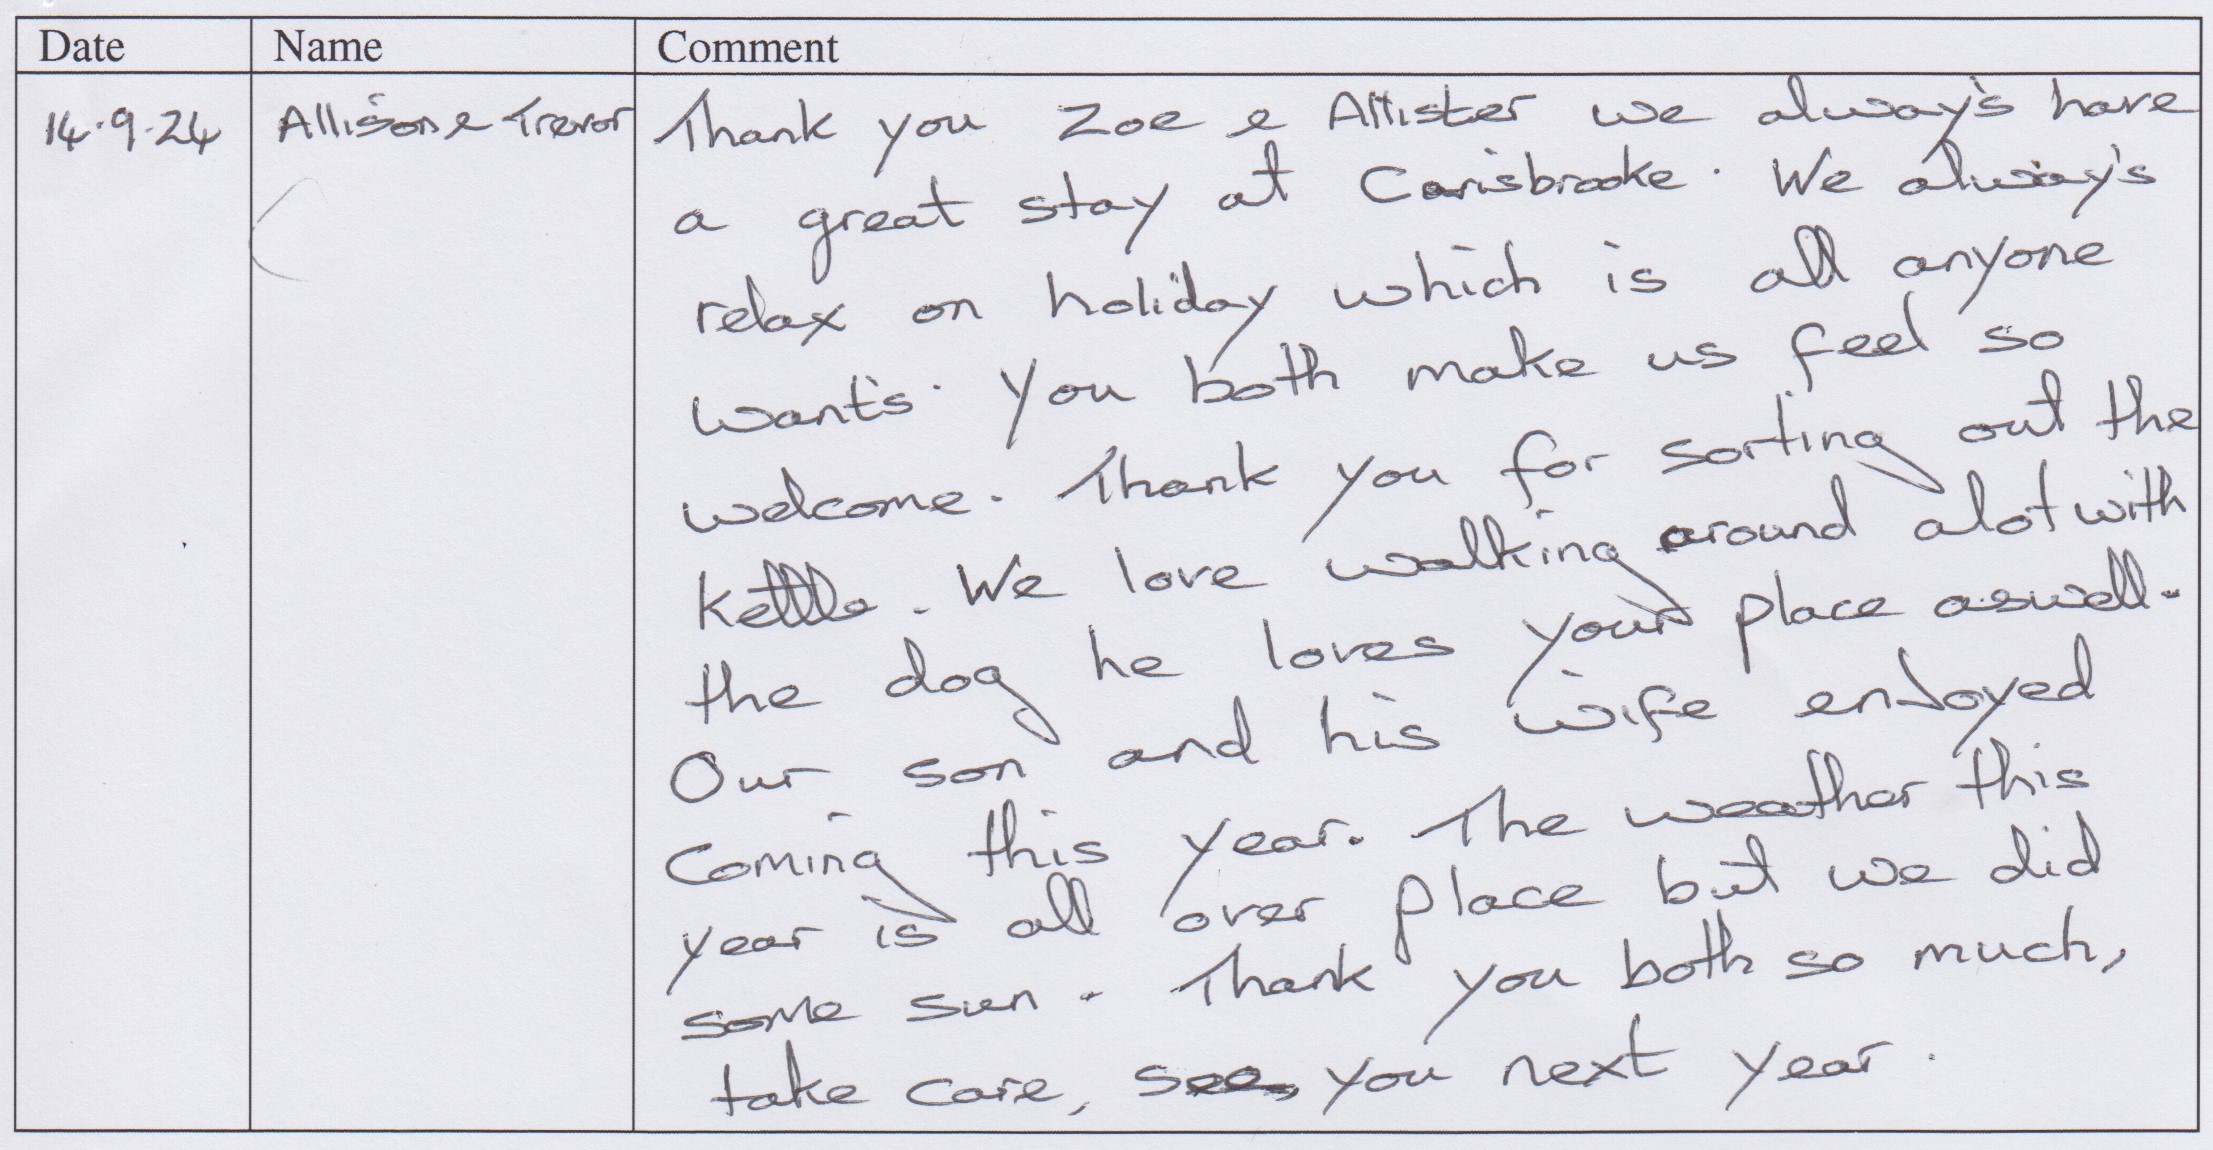 Date Name Comment
14.9.24 Allison & Trevor Thank you Zoe & Allister we always have
a great stay at Carisbrooke. We always
relax on holiday which is all anyone
wants. You both make us feel so
welcome. Thank you for sorting out the
kettle. We love walking around alot with
the dog he loves your place aswell.
Our son and his wife enjoyed
Coming this year. The weather this
year is all over place but we did
some sun. Thank you both so much,
take care, see, you next year.